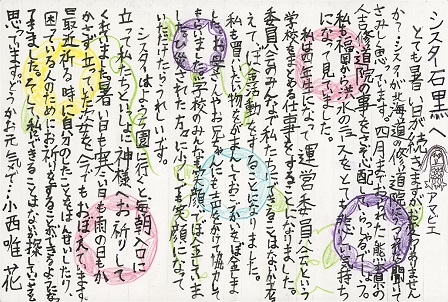 シスター石黒へ
アマビエ
とても暑い日が続きますがお変わりありません
か。シスターが北海道の修道院にうつられたと聞い
さみしく思っています。四月まで
人吉修道院の事を
私も
になって見ていました。
私は四年生になって運営委員会という
学校をまとめる仕事をすることになりました。
委員会のみなで私たちにできることはなにか考
えてぼ金活動をすることになりました。
私も買いたい物などがまんしておこづかいをぼ金しま
した。お父さんやお兄ちゃんにも声をかけて協力して
もらいました。学校のみんなも笑顔でぼ金していま
した。ひ災された方々に小しでも笑顔になって
いただけたらうれしいです。
シスターはようち園に行くと毎朝入口に
立って私たちといっしょに神様へお祈りして
くれました。暑い日も寒い日も雨の日もか
かさず立っていた姿を今でもおぼえています。
最近祈る時に自分のことをはん省したり、
困っている人のためにお祈りをすることができるようにな
てきました。
思っています。どうかお元気で… 小西唯花